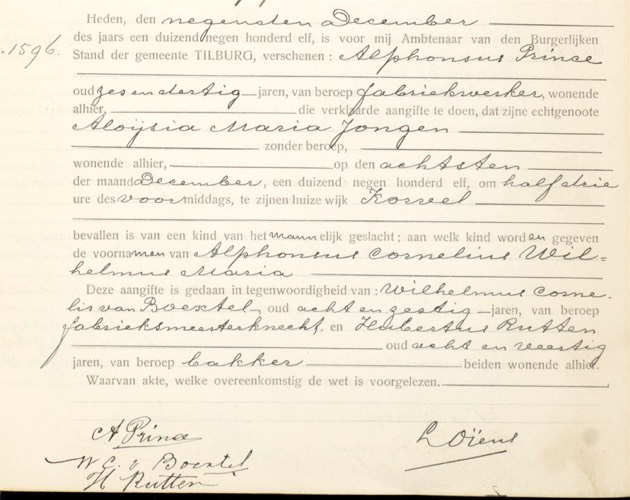 Heden, den negensten December
des jaars een duizend negen honderd elf, is voor mij Ambtenaar van den Burgerlijken
.1596. Stand der gemeente TILBURG, verschenen: Alphonsus Prince
oud zes en dertig jaren, van beroep fabriekwerker, wonende
alhier, die verklaarde aangifte te doen, dat zijne echtgenoote
Aloÿsia Maria Jongen
zonder beroep,
wonende alhier, op den achtsten
der maand December, een duizend negen honderd elf, om half drie
ure des voormiddags, te zijnen huize wijk Korvel
bevallen is van een kind van het mannelijk geslacht; aan welk kind worden gegeven
de voornamen van Alphonsus Cornelius Wil=
helmus Maria
Deze aangifte is gedaan in tegenwoordigheid van: Wilhelmus Corne-
lis van Boextel, oud acht en zestig jaren, van beroep
fabrieksmeesterknecht, en Hubertus Rutten
oud acht en veertig
jaren, van beroep bakker beiden wonende alhier.
Waarvan akte, welke overeenkomstig de wet is voorgelezen.
A Prince
W. C. v Boextel
H Rutten